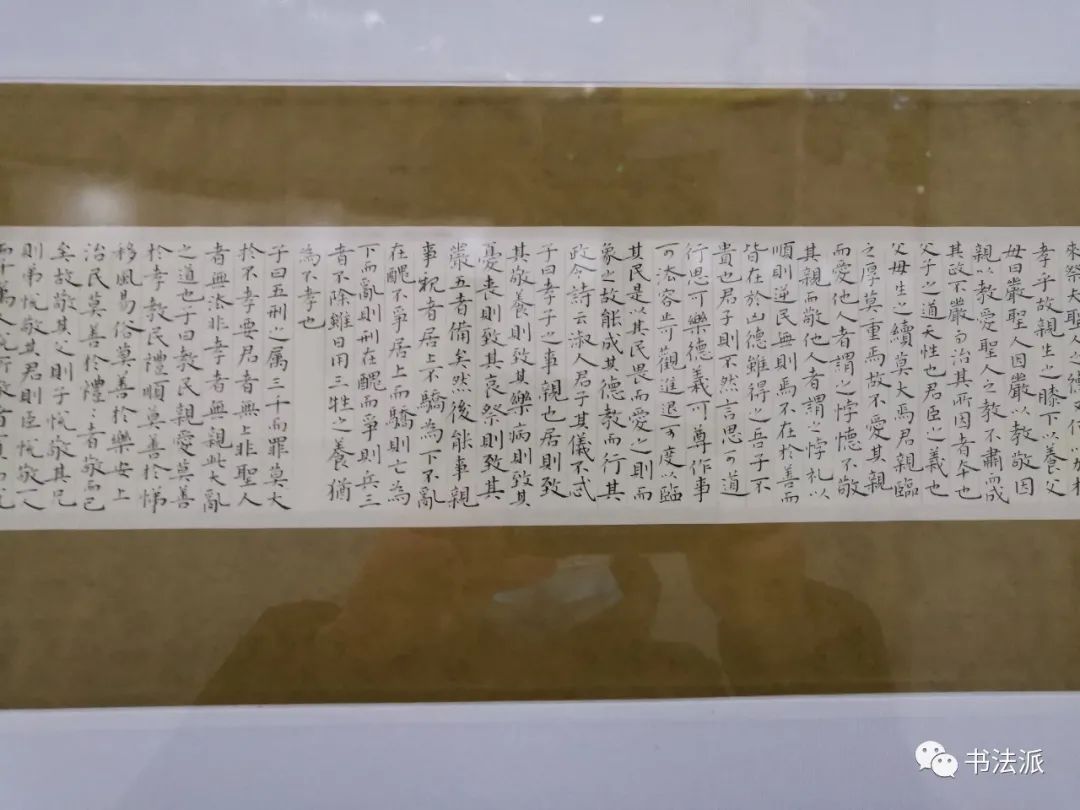 來祭夫聖人之德又何以加
孝乎故親生之膝下以養父
母曰嚴聖人因嚴以教敬因
親以教愛聖人之教不肅而成
其政不嚴而治其所因者本也
父子之道天性也君臣之義也
父母生之續莫大焉君親臨
之厚莫重焉故不愛其親
而愛他人者謂之悖德不敬
其親而敬他人者謂之悖礼以
順則逆民無則焉不在於善而
皆在於凶德雖得之君子不
貴也君子則不然言思可道
行思可樂德義可尊作事
可法容止可觀進退可度以臨
其民是以其民畏而愛之則而
象之故能成其德教而行其
政令詩云淑人君子其儀不忒
子曰孝子之事親也居則致
其敬養則致其樂病則致其
憂喪則致其哀祭則致其
嚴五者備矣然後能事親
事親者居上不驕為下不亂
在醜不爭居上而驕則亡為
下而亂則刑在醜而爭則兵三
者不除雖日用三牲之養猶
為不孝也
子曰五刑之属三千而罪莫大
於不孝要君者無上非聖人
者無法非孝者無親此大亂
之道也子曰教民親愛莫善
於孝教民禮順莫善於悌
移風易俗莫善於樂安上
治民莫善於禮:者敬而已
矣故敬其父則子悅敬其兄
則弟悅敬其君則臣悅敬一人
而千萬人悅所敬者寡而悅
书法派